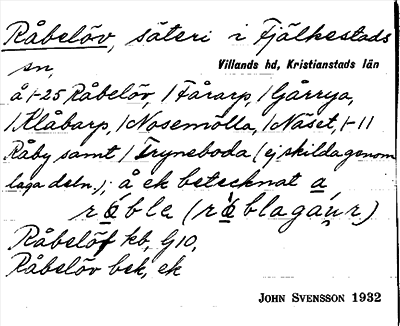 Råbelöv, säteri i Fjälkestads
sn, Villands hd, Kristianstads län
å 1-25 Råbelöv, 1 Fårarp, 1 Gårrya,
1 Klåbarp, 1 Nosemölla, 1 Näset, 1-11
Råby samt 1 Tryneboda (ej skilda genom
laga deln.); å ek betecknat a
råble (rò̀blagáųr)
Råbelöf kb, G10,
Råbelöv bek, ek
JOHN SVENSSON 1932